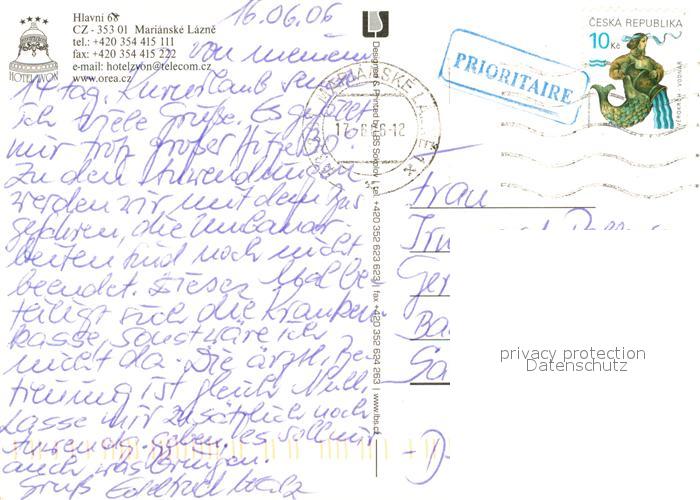 Hlavní 68
CZ - 353 01 Mariánské Lázně
tel.: +420 354 415 111
fax: +420 354 415 222
e-mail: hotelzvon@telecom.cz
www.orea.cz
HOTEL ZVON
16.06.06
von meinem
14 tag. Kururlaub sende
ich viele Grüße. Es gefällt
mir trotz großer Hitze
Zu den Anwendungen
werden wir mit dem
gefahren, die Umbauar-
beiten sind noch nicht
beendet. Dieses Mal be-
teiligt sich die Kranken-
kasse, sonst wäre ich
nicht da. Die ärztl. Be-
treuung ist gleich Null.
Lasse mir zusätzlich noch
geben, es soll mir
auch was bringen.
Gruß
Designed & Printed by LBS Sokolov | tel. +420 352 623 623 | fax +420 352 624 263 | www.lbs.cz
PRIORITAIRE
ČESKÁ REPUBLIKA
10 Kč
VĚROKRUH - VODNÁŘ
MARIÁNSKÉ LÁZNĚ
Frau
privacy protection
Datenschutz